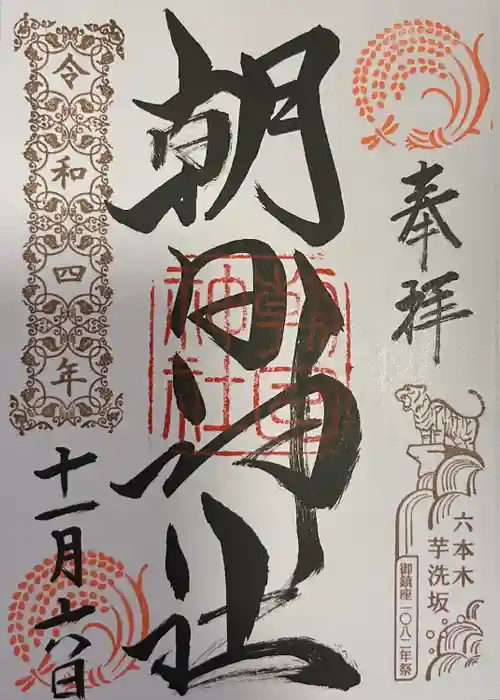 奉拝
六本木
芋洗坂
御鎮座一〇八二年祭
朝日神社
朝日
神社
令和四年
十一月十六日